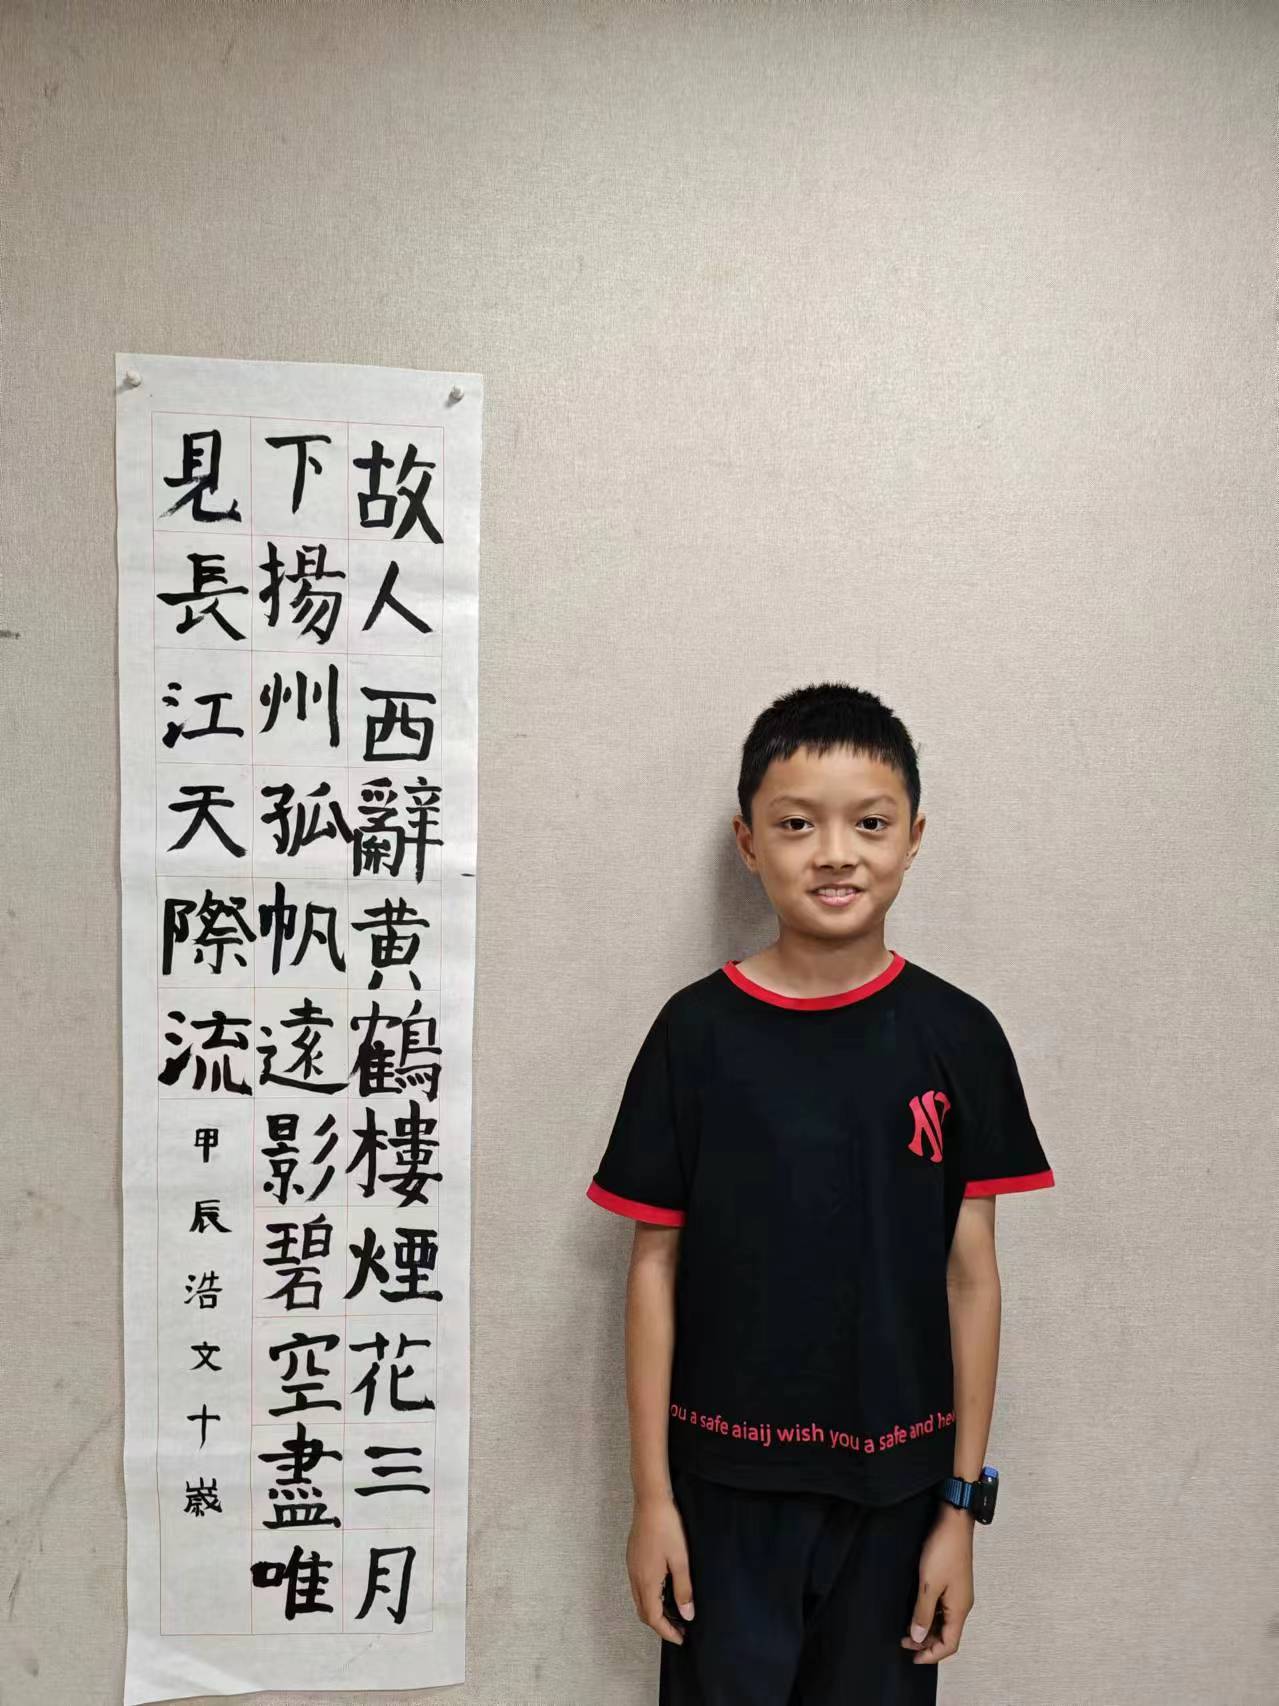 故人西辭黄鶴樓煙花三月
下揚州孤帆遠影碧空盡唯
見長江天際流甲辰浩文十歲
NY
ou a safe aiaij wish you a safe and he